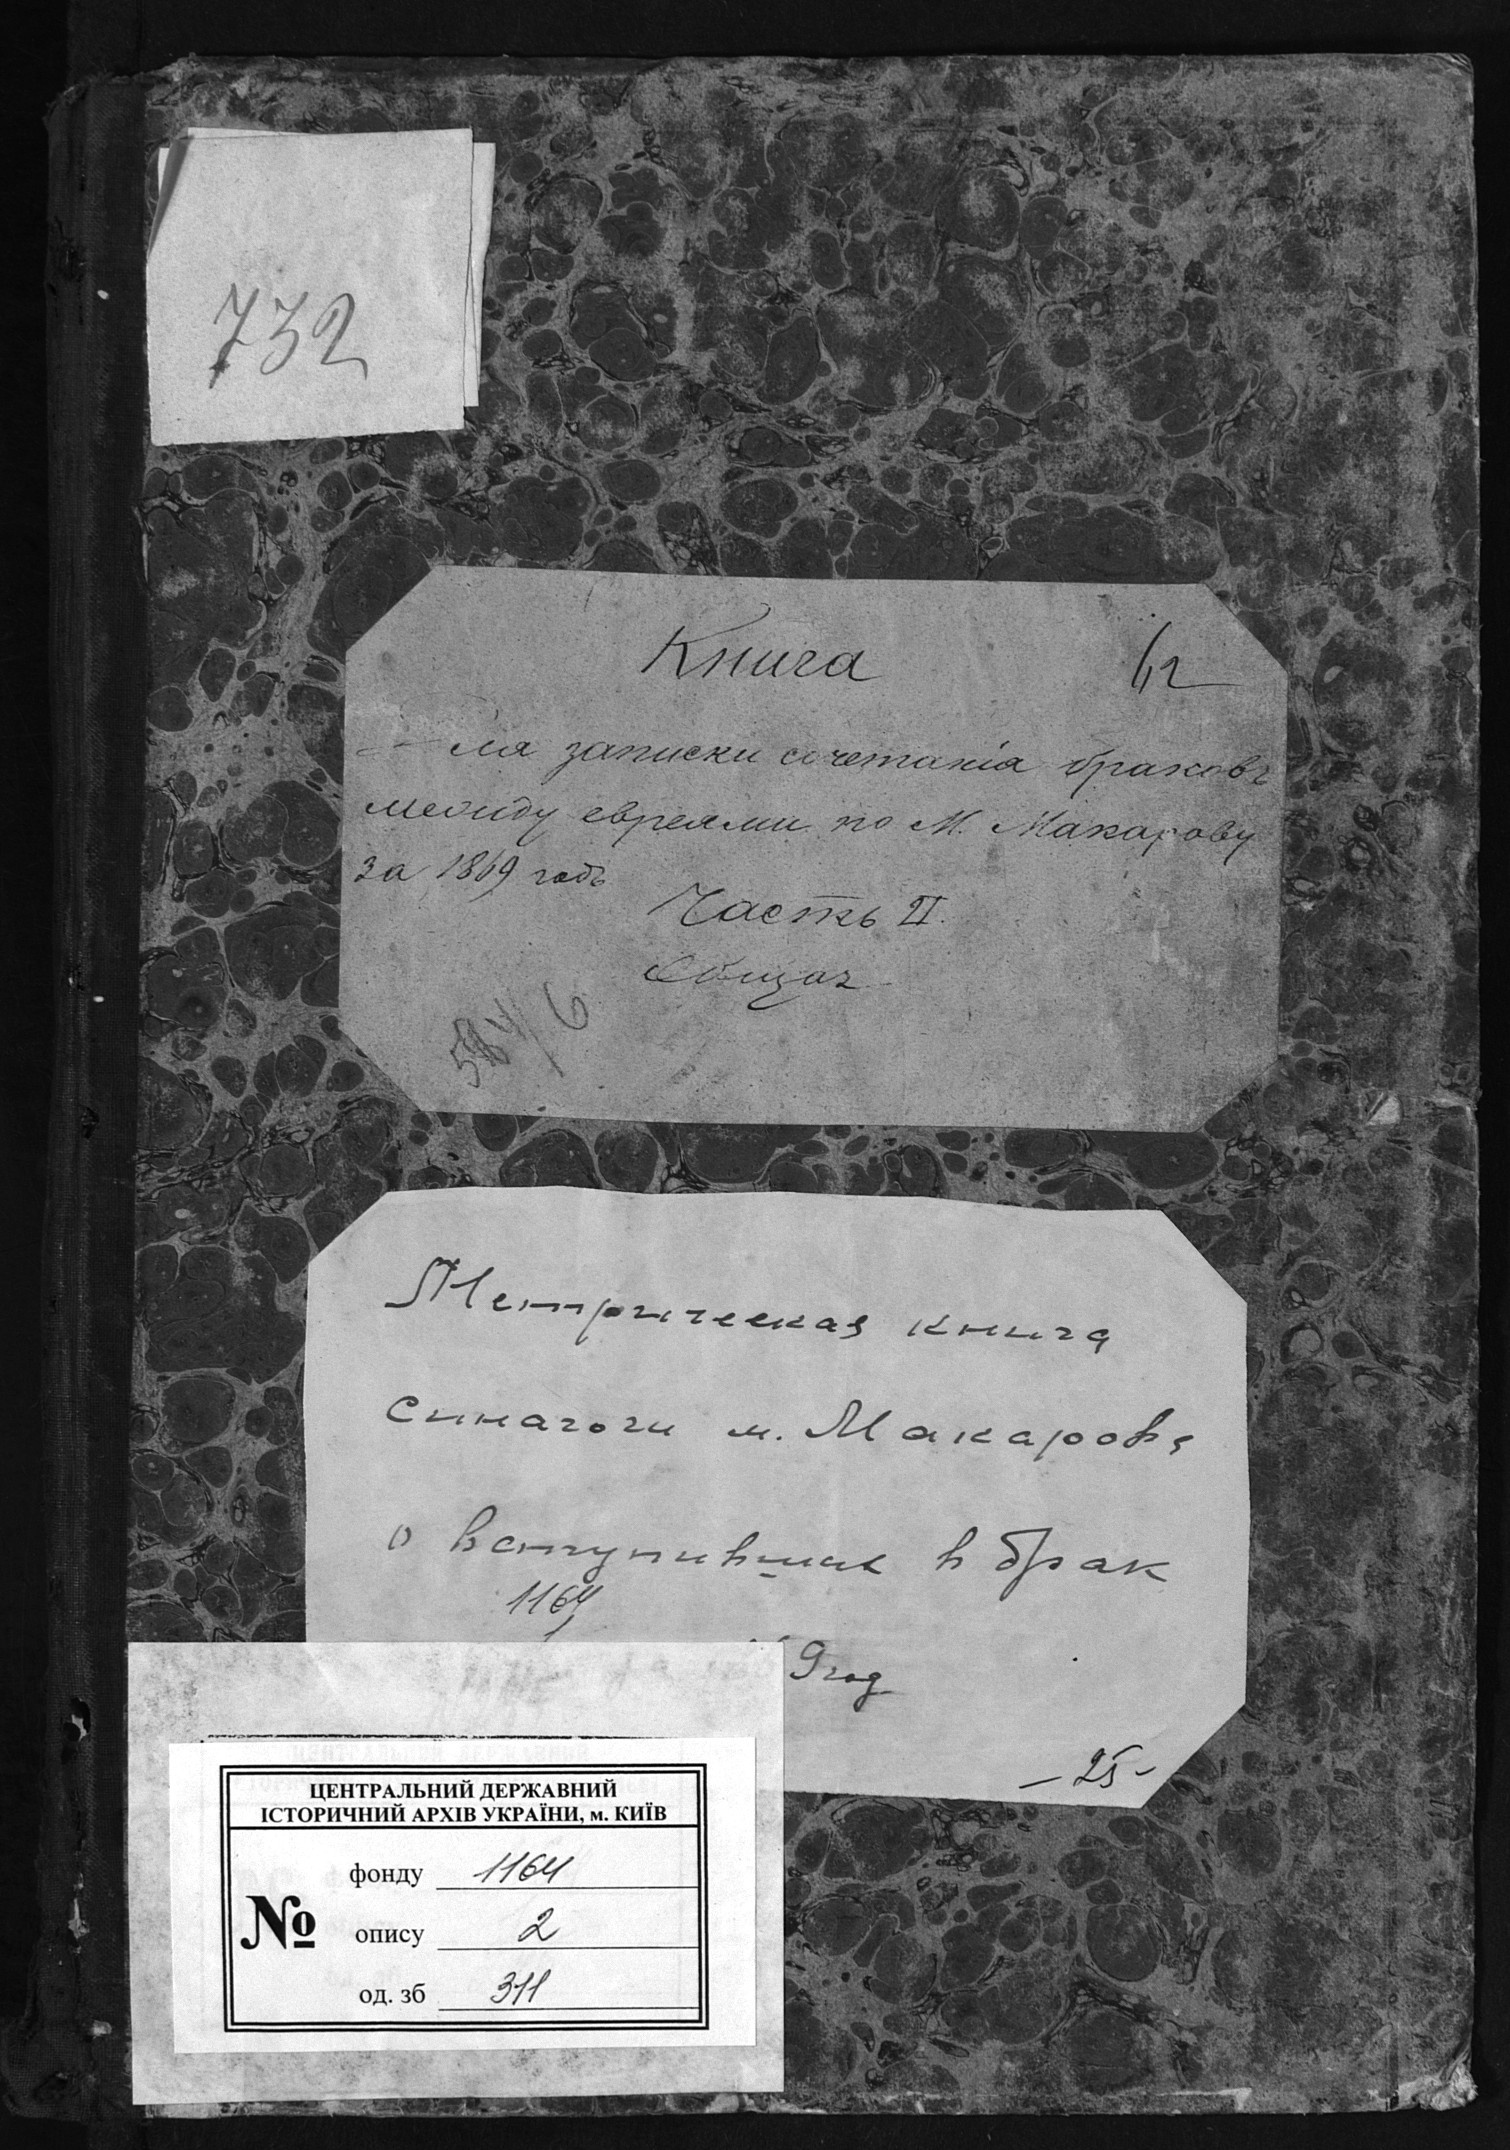 732
Книга
42
для записки сочетанія браковъ
между евреями по М. Макарову
за 1869 годъ
Часть II.
Общая
584/6
Метрическая книга
синагоги м. Макарова
о вступивших в брак
1164
9 год
- 25 -
ЦЕНТРАЛЬНИЙ ДЕРЖАВНИЙ
ІСТОРИЧНИЙ АРХІВ УКРАЇНИ, м. КИЇВ
№
фонду 1164
опису 2
од. зб 311